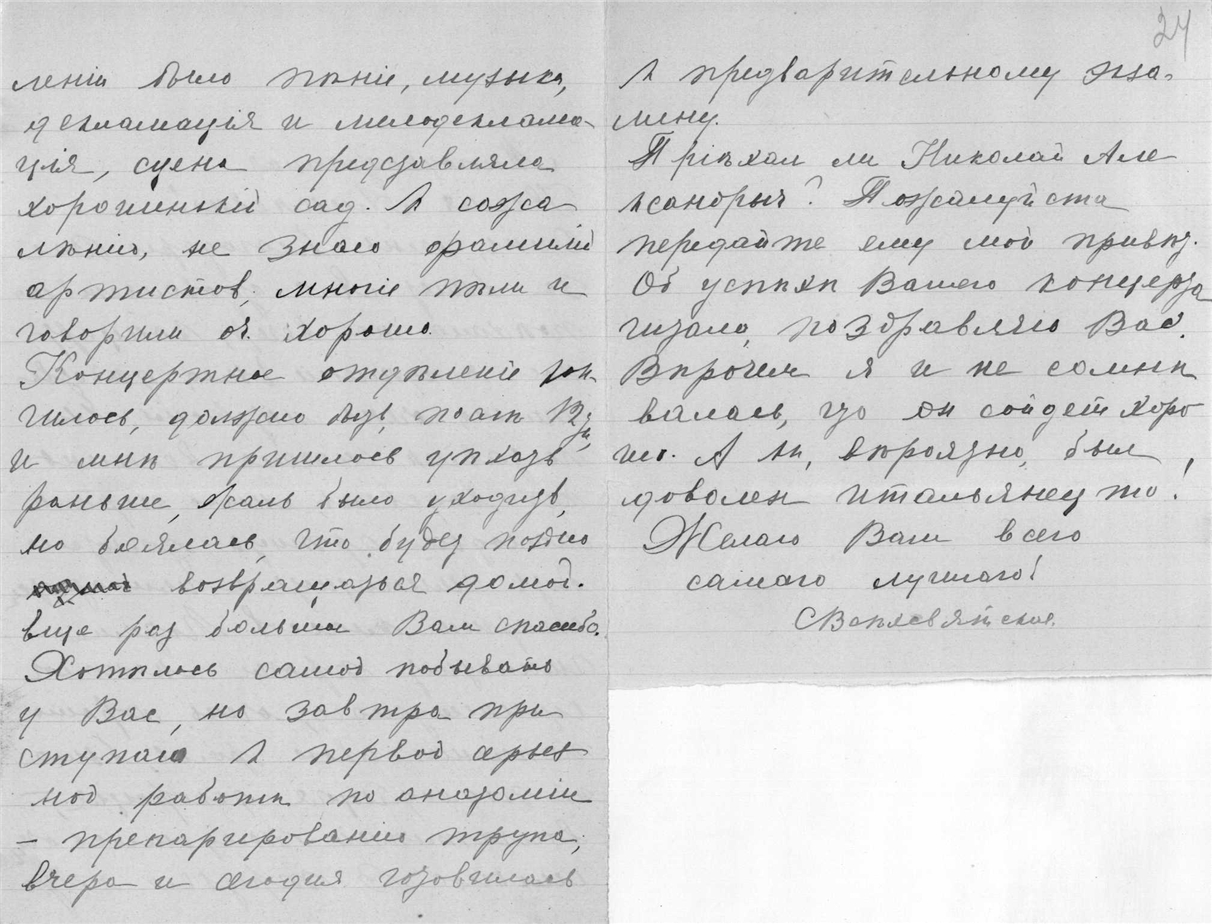 леніи было пѣніе, музыка,
декламація и мелодеклама-
ція, сцена представляла
хорошенькій сад. К сожа
лѣнію, не знаю фамилій
артистов, многіе пѣли и
говорили оч. хорошо.
Концертное отдѣленіе кон-
чилось, должно быть, послѣ 12 ч,
и мнѣ пришлось уѣхать
раньше, жаль было уходить,
но боялась, что будет поздно
возвращаться домой.
Еще раз большое Вам спасибо.
Хотѣлось самой побывать
у Вас, но завтра при
ступаю к первой серьез
ной работѣ по анатоміи
– препарированію трупа,
вчера и сегодня готовилась
24
к предварительному экза-
мену.
Пріѣхал ли Николай Але
ксандрыч? Пожалуйста
передайте ему мой привѣт.
Об успѣхѣ Вашего концерта
читала, поздравляю Вас.
Впрочем я и не сомнѣ
валась, что он сойдет хоро
шо. А как, вѣроятно, был
доволен итальянец то!
Желаю Вам всего
самаго лучшаго!